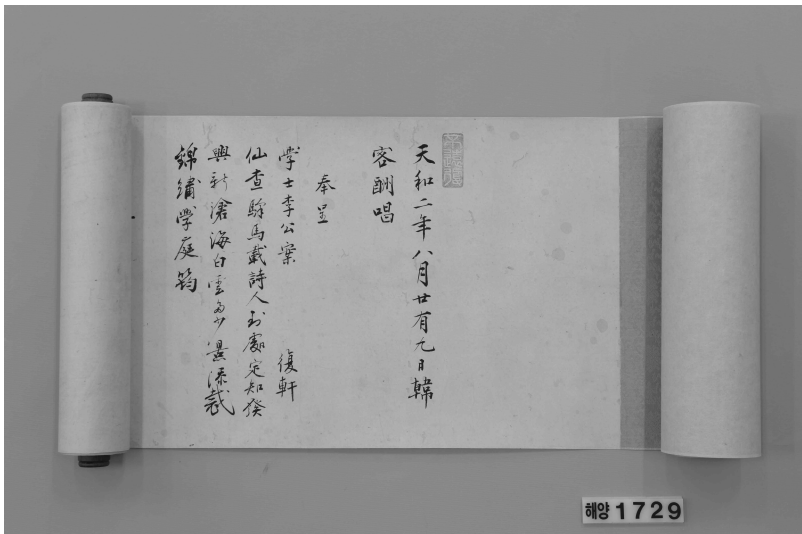 天和二年八月廿有九日韓
客酬唱
奉呈
學士李公案 復軒
仙查驂馬載詩人到處定知發
興新滄海白雲多少景添裁
錦繡学庭筠
해양 1729